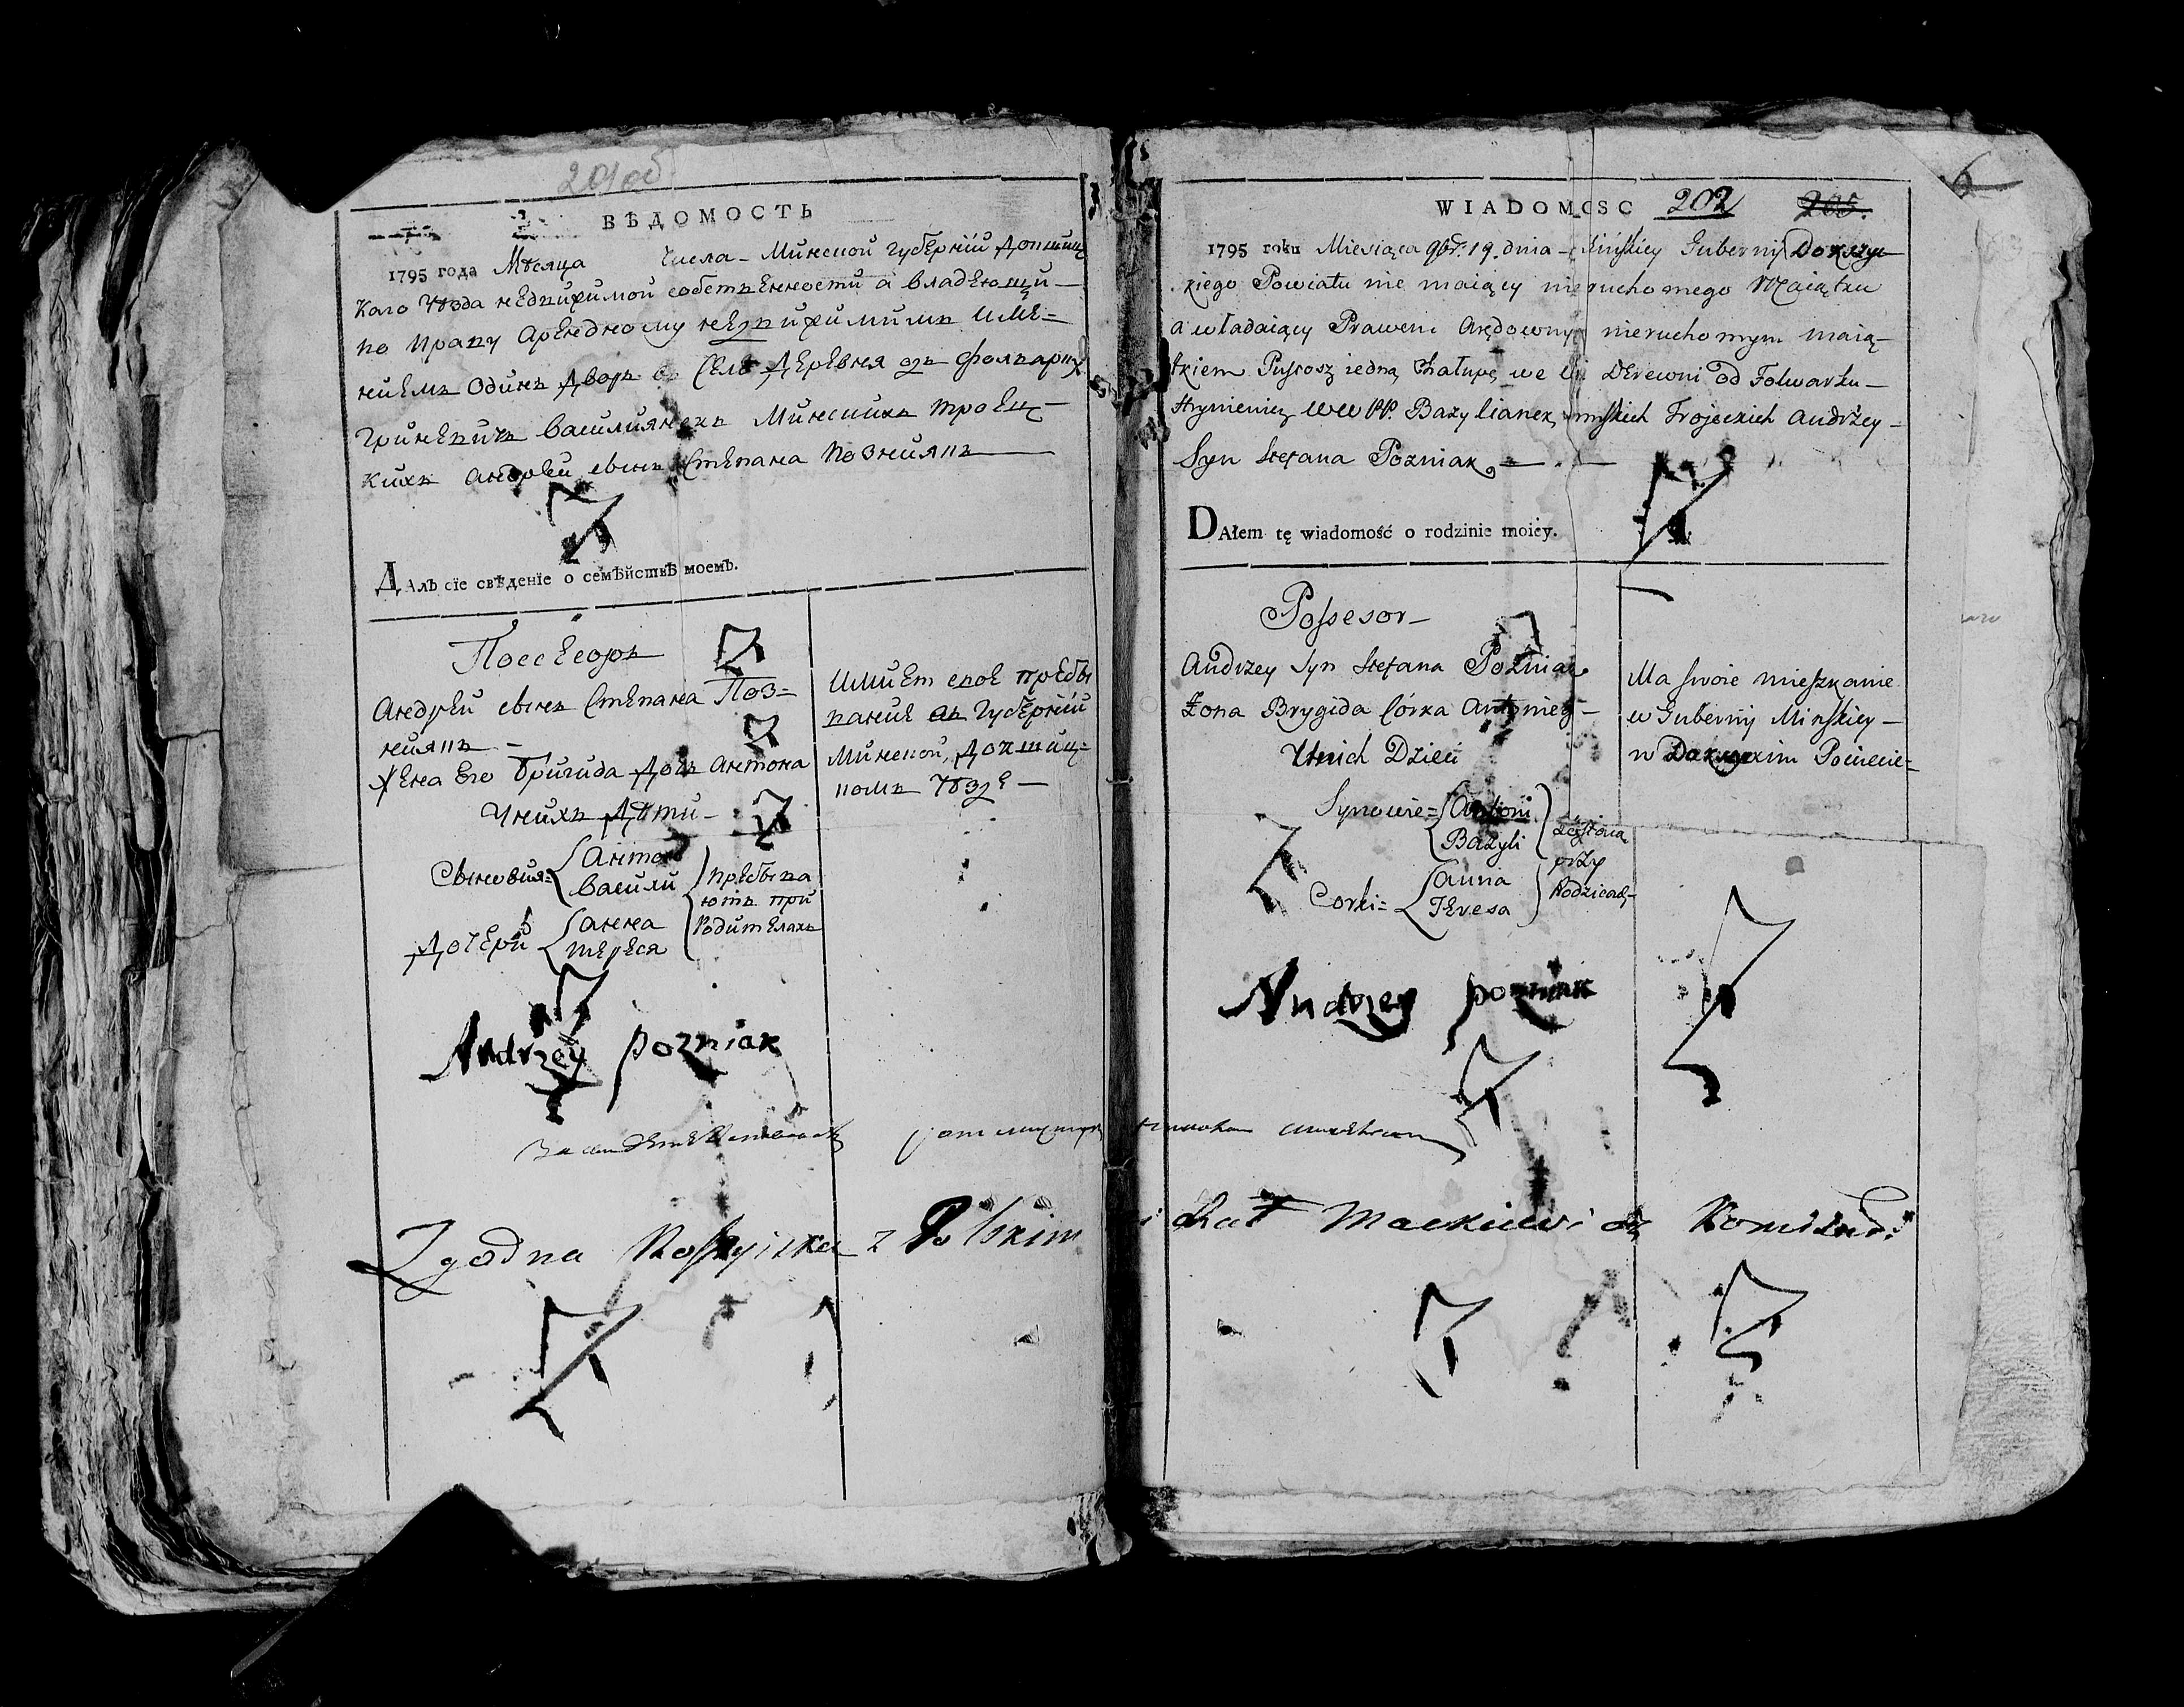 201 об
ВѢДОМОСТЬ
1795 года Мѣсяца Числа - Минской Губерніи Докшиц
каго Уезда недвижимой собственности а владеющи-
по праву арендному недвижимимъ име=
ниемъ Одинъ Дворъ въ Селе Деревня одъ Фольварку
Гриневичъ Василиянекъ Минскихъ Троец-
кихъ Андрей сынъ Степана Познякъ
ДАлъ сїе свѣденїе о семѣйствѣ моемъ.
Поссесоръ
Андрей сынъ Степана Поз=
някъ -
Жена Его Бригида Дочь Антона
У нихъ Дѣти -
Сыновия= Антон
Василий
Дочери Анна
Тереса
пребыва
ютъ при
Родителахъ
Имиет свое пребы
вание въ Губернии
Минской, Докшиц-
комъ Уезде -
Andrzey pozniak
Zgodna Rossyiska z Polskim
WIADOMOSC 202 205.
1795 roku Miesiąca 9br. 19. dnia - Mińskiey Guberniy Dokszyc
kiego Powiatu nie maiący nieruchomego Maiątku
a władaiący Prawem Arędownym nieruchomym maią-
tkiem Pusrosz iedną Chałupę we Wsi Derewni od Folwarku -
Hryniewicz WW PP. Bazylianek minskich Trojeckich Andrzey -
Syn Stefana Pozniak
DAłem tę wiadomość o rodzinie moiey.
Possesor -
Andrzey Syn Stefana Pozniak
Żona Brygida Córka Antoniego -
U tych Dzieci
Synowie = Antoni
Bazyli
Corki = Anna
Teresa
zostaią
przy
Rodzicach -
Ma swoie mieszkanie
w Guberniy Minskiey -
w Dokszyckim Powiecie =
Andrzey pozniak
Michał Mackiewicz
6